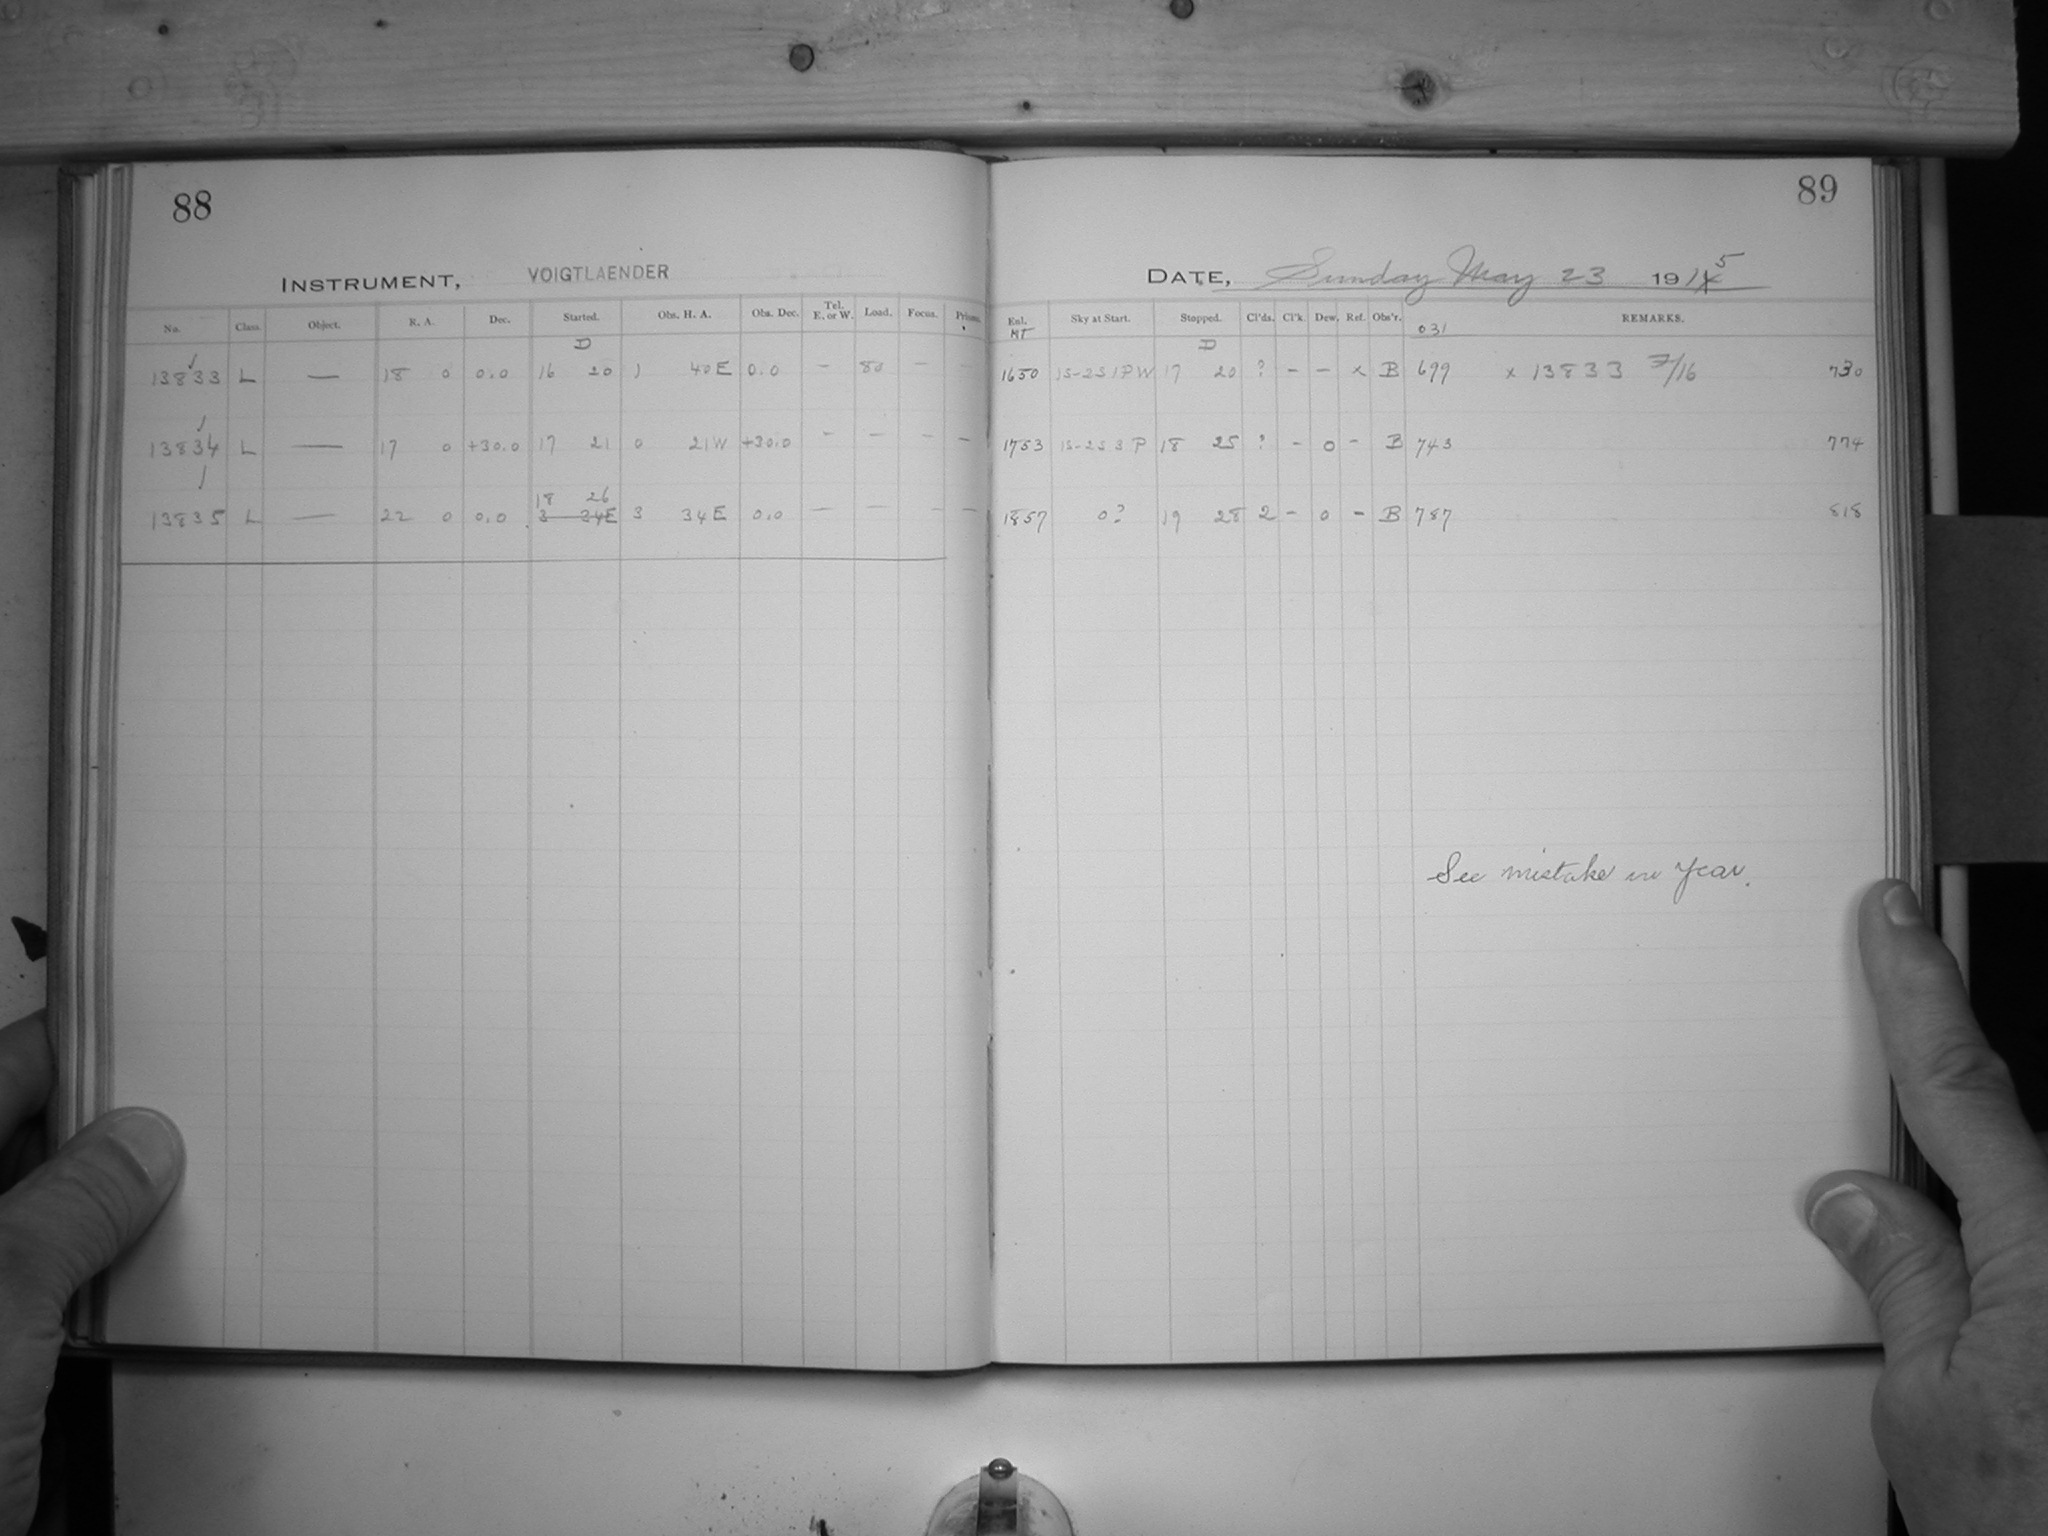 88
INSTRUMENT, VOIGTLAENDER
No. Class. Object. R. A. Dec. Started. Obs. H. A. Obs. Dec. Tel. E. or W. Load. Focus. Prisms.
D
13833 L — 18 0 0.0 16 20 1 40 E 0.0 — 80 — —
13834 L — 17 0 +30.0 17 21 0 21 W +30.0 — — — —
18 26
13835 L — 22 0 0.0 3 34E 3 34 E 0.0 — — — —
89
DATE, Sunday May 23 1914 5
Enl. Sky at Start. Stopped. Cl'ds. Cl'k. Dew. Ref. Obs'r. REMARKS.
MT 031
D
1650 1S-2S1PW 17 20 ? - - x B 699 x 13833 7/16 730
1753 1S-2S3P 18 25 ? - 0 - B 743 774
1857 0? 19 28 2 - 0 - B 787 818
See mistake in year.